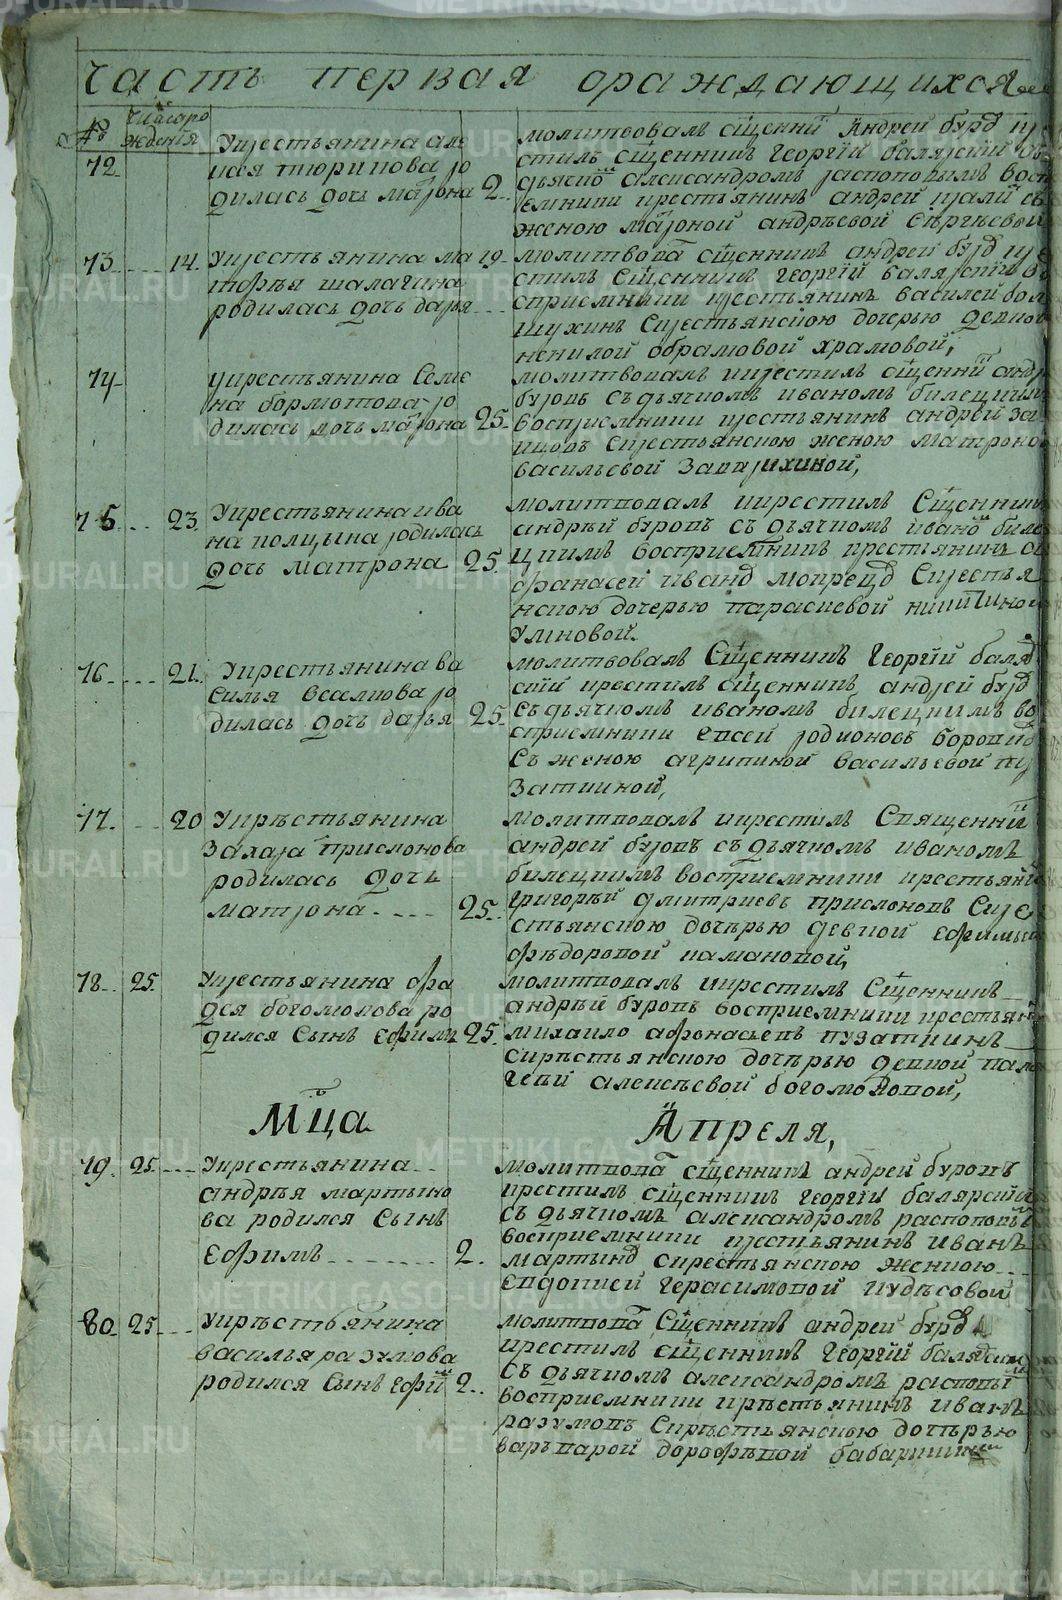 часть первая ораждающихся
№
число ро
ждения
72
Укрестьянина але
ѯѣя тюрикова ро
дилась дочь матрона 2
молитвовалъ сщенни Андрей буро
стилъ сщенникъ георгiй балярскiй
дьячко александромъ распоповымъ восп
емники крестьянинъ андрей
женою матроной андрѣевой сергѣевой
73 14. Укрестьянина ма 19
тофѣя шалагина
родилась дочь дарья
молитвова сщенникъ андрей буро кре
стилъ сщенникъ георгiй балярскiй во
сприемники крестьянинъ василей бол
шухинъ скрестьянскою дочерью девкою
ненилой обрамовой храмовой,
74
укрестьянина семе
на бормотова ро
дилась дочь матрона 25
молитвовалъ икрестилъ сщенни андр
буровъ съдьячкомъ иваномъ билецкимъ
восприемники крестьянинъ андрей
скрестьянскою женою матроно
васильевой запарихиной,
75 23 Укрестьянина ива
на полцына родилась
дочь матрона 25.
молитвовалъ икрестилъ сщенникъ
андрѣй буровъ съ дьячкомъ ивано биле
цкимъ восприемникъ крестiянинъ а
фанасей ивано мокрецо скрестья
нскою дочерью параскевой никитиной
умновой.
76 21. Укрестьянина ва
силья веселкова ро
дилась дочь дарья 25.
молитвовалъ сщенникъ георгiй баля
скiй крестилъ сщенникъ андрей буро
съдьячкомъ иваномъ билецкимъ во
сприемники евсей родионовъ
съженою агрипиной васильевой пу
заткиной,
77. 20 Укрѣстьянина
захара прислонова
родилась дочь
матрона 25.
молитвовалъ икрестилъ священни
андрей буровъ съдьячкомъ иваномъ
билецкимъ восприемники крестьяни
григорьй дмитриевъ прислоновъ скре
стьянскою дочѣрью девкой ефимьей
фѣдоровой
78. 25. Укрестьянина фа
дея богомолова ро
дился сынъ ефимъ 25.
молитвовалъ икрестилъ сщенникъ
андрѣй буровъ восприемники крестьян
михайло афонасьевъ пузаткинъ
скрѣстьянскою дочѣрью девкой пала
геей алексѣевой богомоловой,
Мца Апреля,
79. 25. Укрестьянина
андрѣя мартыно
ва родился сынъ
ефимъ 2.
молитвова сщенникъ андрей буровъ
крестилъ сщенникъ георгiй балярскiй
съ дьячкомъ александромъ распоповы
восприемники крестьянинъ иванъ
мартыно скрестьянскою женкою
евдокией герасимовой
80. 25. Укрѣстьянина
василья разумова
родился сынъ ефи 2.
молитвова сщенникъ андрей буро
крестилъ сщенникъ георгiй балярскiй
съ дьячкомъ александромъ распопо
восприемники крѣстьянинъ иванъ
разумовъ скрѣстьянскою дочѣрью
варъварой дорофѣвой